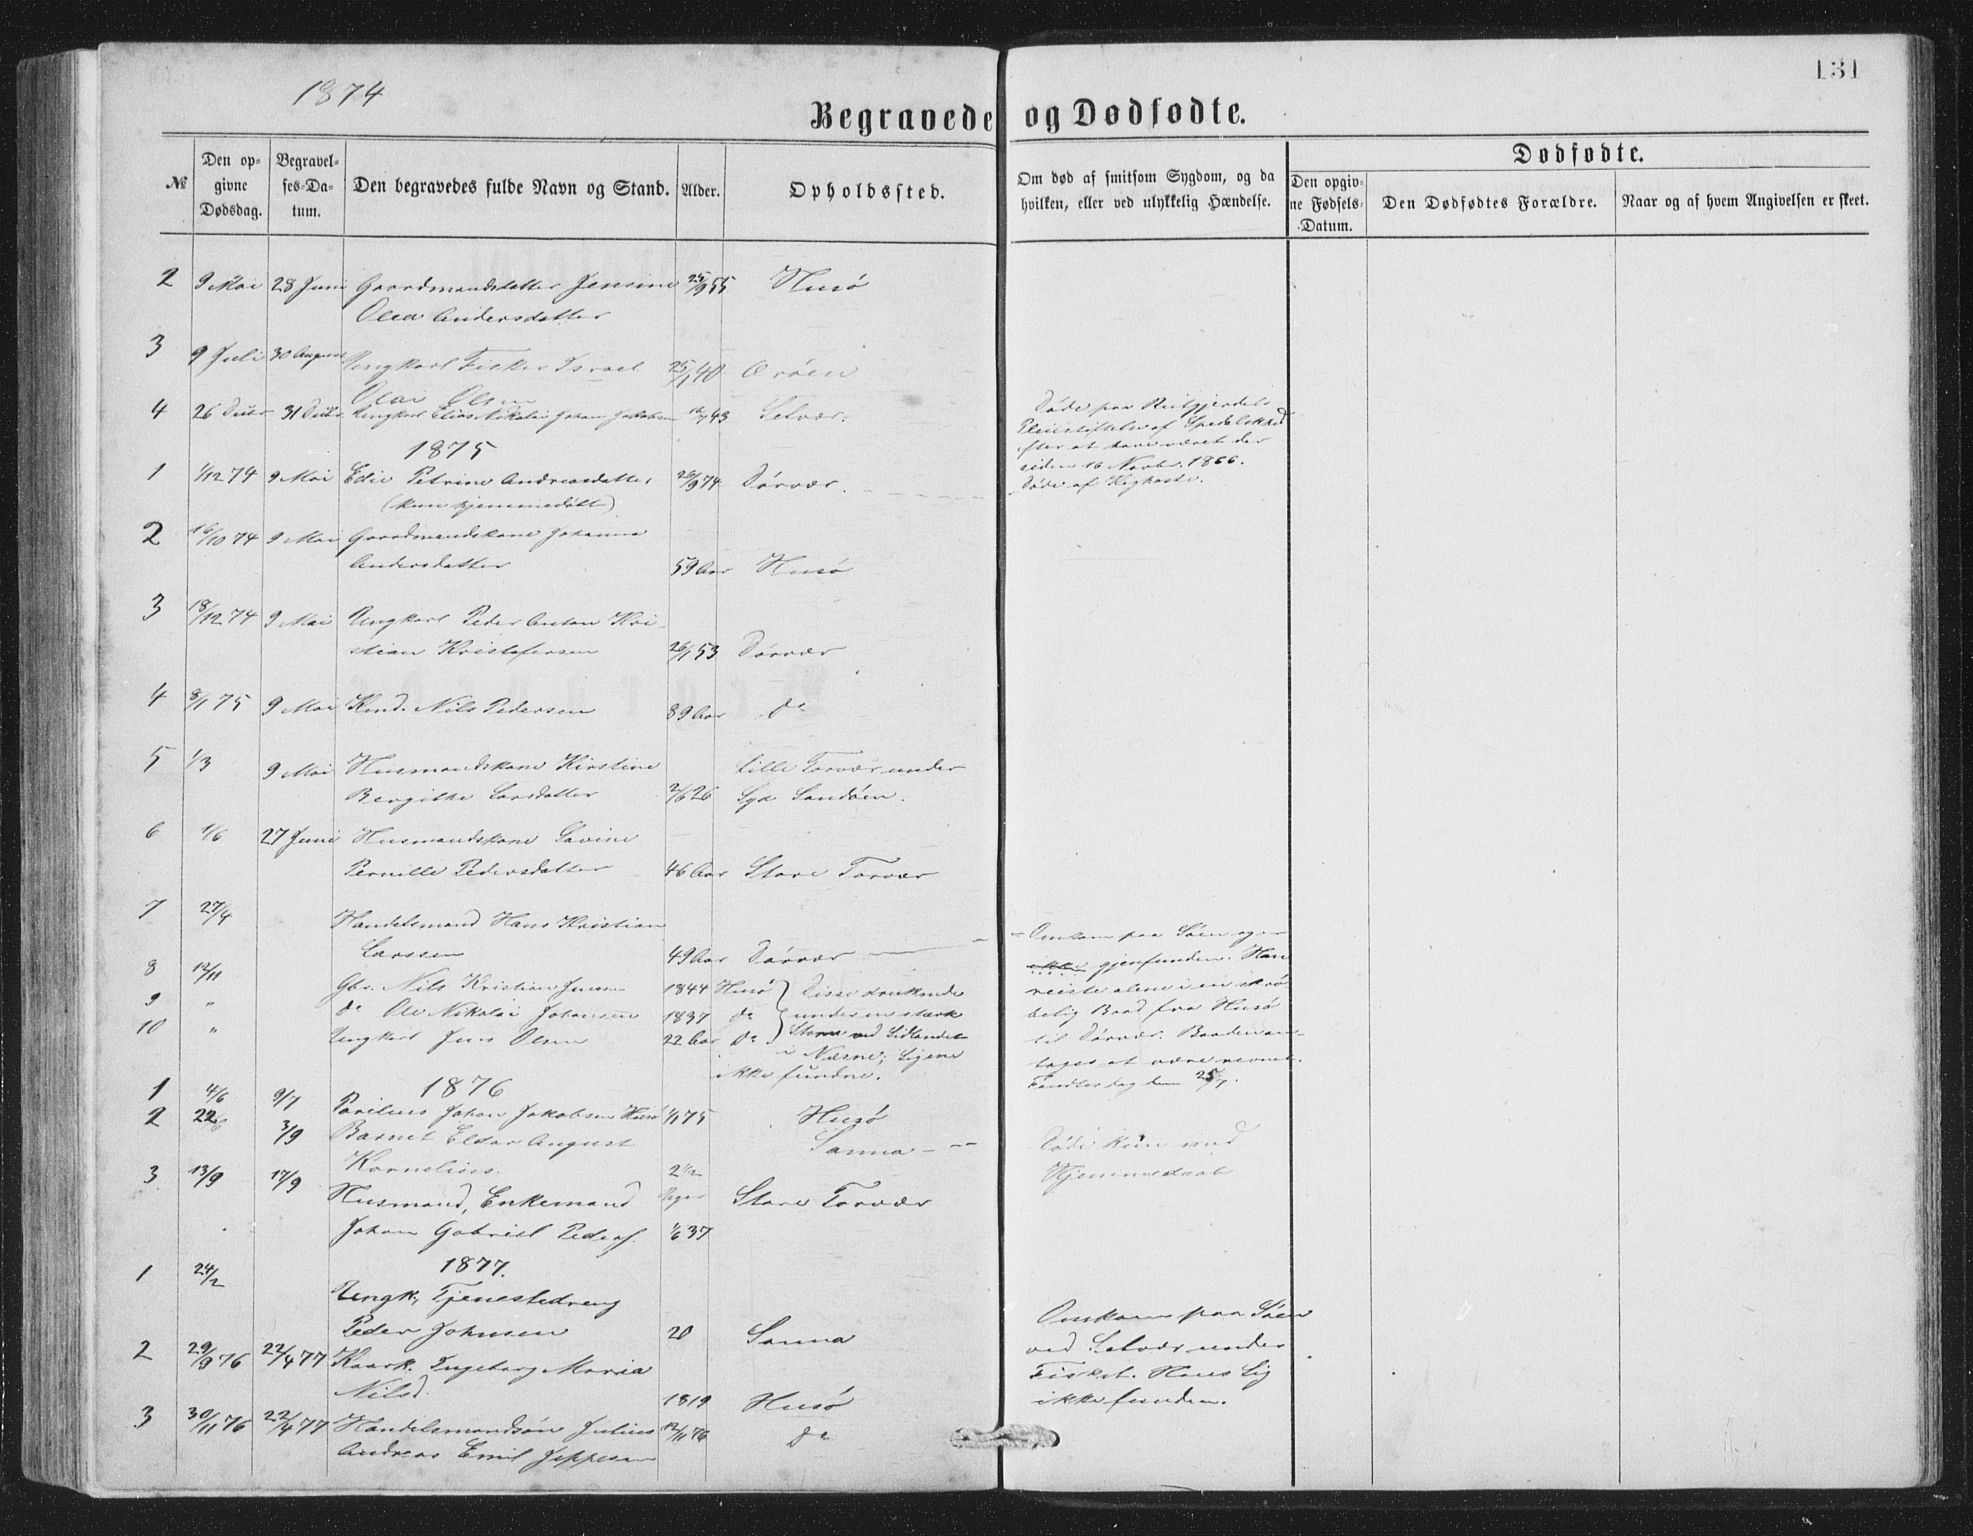 1874
131
Begravede og Dødfødte.
№
Den opgivne Dødsdag.
Begravelses-Datum.
Den begravedes fulde Navn og Stand.
Alder.
Opholdssted.
Om død af smitsom Sygdom, og da hvilken, eller ved ulykkelig Hændelse.
Dødfødte.
Den opgivne Fødsels-Datum.
Den Dødfødtes Forældre.
Naar og af hvem Angivelsen er skeet.
2 9 Mai 28 Juni Gaardmandsdatter Jensine 25/9 55 Husö
Olea Andersdatter
3 9 Juli 30 August Ungkarl Fisker Israel 25/1 40
Olai Olsen
4 26 Decbr 31 Decbr. Ungkarl Elias Nikolai Johan Jakobsen 43 Selvær.
Døde paa Reitgjerdets
Pleiestiftelse af Spedalskhed
efter at have været der
siden 16 Novbr. 1866.
1875
1 1/12 74 9 Mai Edie Petrine Andreasdatter 26/9 74 Dørvær.
Døde af Kighoste.
(kun hjemmedøbt)
2 16/10 74 9 Mai Gaardmandskone Johanna
Andersdatter 59 Aar Husö
3 18/12 74 9 Mai Ungkarl Peder Anton Kri-
stian Kristofersen 26/1 53 Dørvær
4 8/1 75 9 Mai Kmd. Nils Pedersen 89 Aar do
5 1/3 9 Mai Husmandskone Kirstine Lille Torvær under
Bergithe Larsdatter 2/6 26 Syd Sandøen.
6 1/6 27 Juni Husmandskone Savine
Pernille Pedersdatter 46 Aar Store Torvær
7 27/4 Handelsmand Hans Kristian
Larssen 49 Aar Dørvær
Omkom paa Søen og er
ikke gjenfunden. Han
reiste alene i en skrø-
belig Baad fra Husö
til Dørvær. Baaden an-
toges at være revnet.
8 12/11 Gbr. Nils Kristian Jensen 1844 Husö
9 " do Ole Nikolai Johansen 1837 do
10 " Ungkarl Jens Olsen 22 Aar do
Disse druknede
under en stærk
Storm ved Sidlandet
i Næsne; Ligene
ikke fundne.
1876
1 4/6 9/7 Johan Jakobsen Husö 1/1 75 Husö
2 22/6 3/9 Barnet Eldor August Sanna
Kornelius. 2 1/2
Uger
Døde kun med
Hjemmedaab
3 13/9 17/9 Husmand, Enkemand Store Torvær
Johan Gabriel Peders. 1/6 37
1877.
1 24/2 Ungk., Tjenestedreng
Peder Johnsen 20 Sanna
Omkom paa Søen
ved Selvær under
Fisket. Hans Lig
ikke funden.
2 29/9 76 22/4 77 Kaark. Ingeborg Maria
Nilsd. 1819 Husö
3 30/11 76 22/4 77 Handelsmandssön Julius 12/11 76 do
Andreas Emil Jeppesen